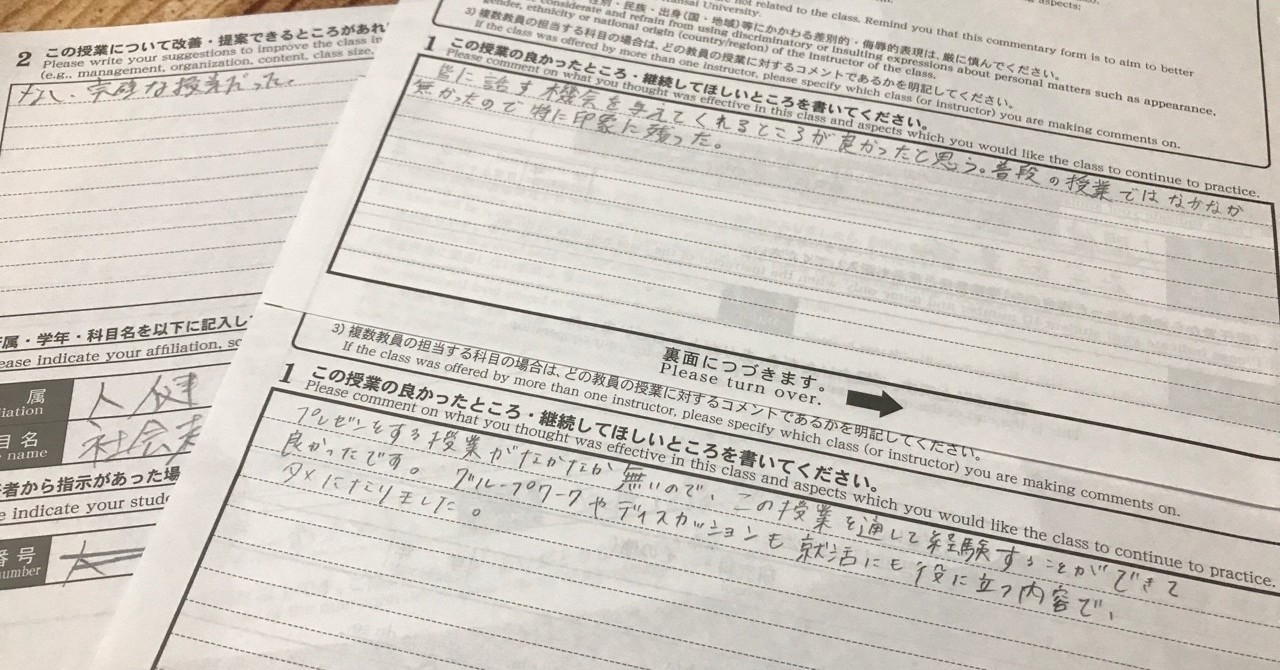 2 この授業について改善・提案できるところがあれ
Please write your suggestions to improve the class in
(e.g., management, organization, content, class size,
なし、完璧な授業だった。
属・学年・科目名を以下に記入し
ease indicate your affiliation, sc
属
liation
人健
目名
name
社会
者から指示があった場
e indicate your stude
番号
number
not related to the class. Remind you that this commentary form is to aim to better
ansai University.
性別・民族・出身(国・地域)等にかかわる差別的・侮辱的表現は、厳に慎んでください。
considerate and refrain from using discriminatory or insulting expressions about personal matters such as appearance,
gender, ethnicity or national origin (country/region) of the instructor of the class.
3) 複数教員の担当する科目の場合は、どの教員の授業に対するコメントであるかを明記してください。
If the class was offered by more than one instructor, please specify which class (or instructor) you are making comments on.
1 この授業の良かったところ・継続してほしいところを書いてください。
Please comment on what you thought was effective in this class and aspects which you would like the class to continue to practice.
皆に話す機会を与えてくれるところが良かったと思う。普段の授業ではなかなか
無かったので特に印象に残った。
裏面につづきます。
Please turn over.
3) 複数教員の担当する科目の場合は、どの教員の授業に対するコメントであるかを明記してください。
If the class was offered by more than one instructor, please specify which class (or instructor) you are making comments on.
1 この授業の良かったところ・継続してほしいところを書いてください。
Please comment on what you thought was effective in this class and aspects which you would like the class to continue to practice.
プレゼンをする授業がなかなか無いので、この授業を通して経験することができて
良かったです。グループワークやディスカッションも就活にも役に立つ内容で、
タメになりました。